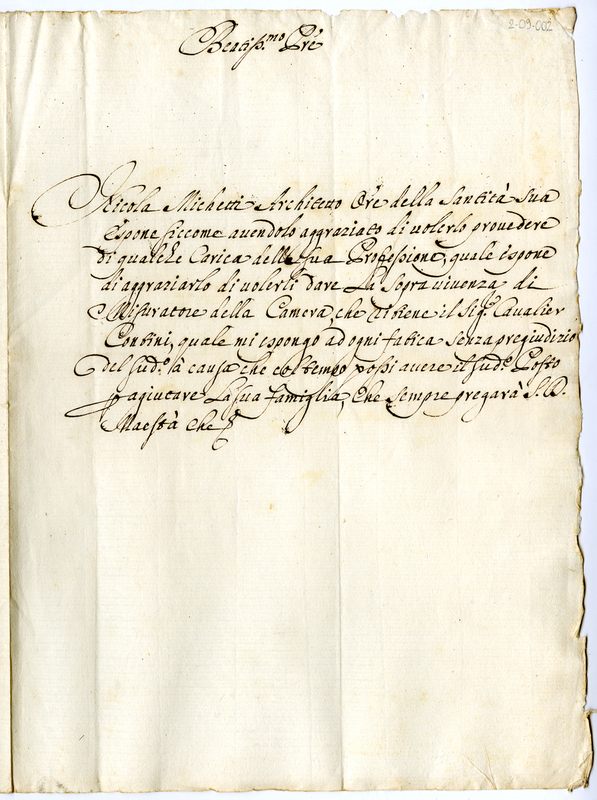 2-09-002
Beatiss.mo Pre
Nicola Michetti Architetto Ore della Santità Sua
espone siccome avendolo aggraziato di volerlo provedere
di qualche Carica della sua Professione, quale espone
di aggraziarlo di volerli dare La Sopravivenza di
Misuratore della Camera, che tiene il Sig.r Cavalier
Contini, quale mi espongo ad ogni fatica senza pregiudizio
del sud.o à causa che col tempo possi avere il sud.o Posto
p agiutare La sua famiglia, che sempre pregarà S. D.
Maestà che